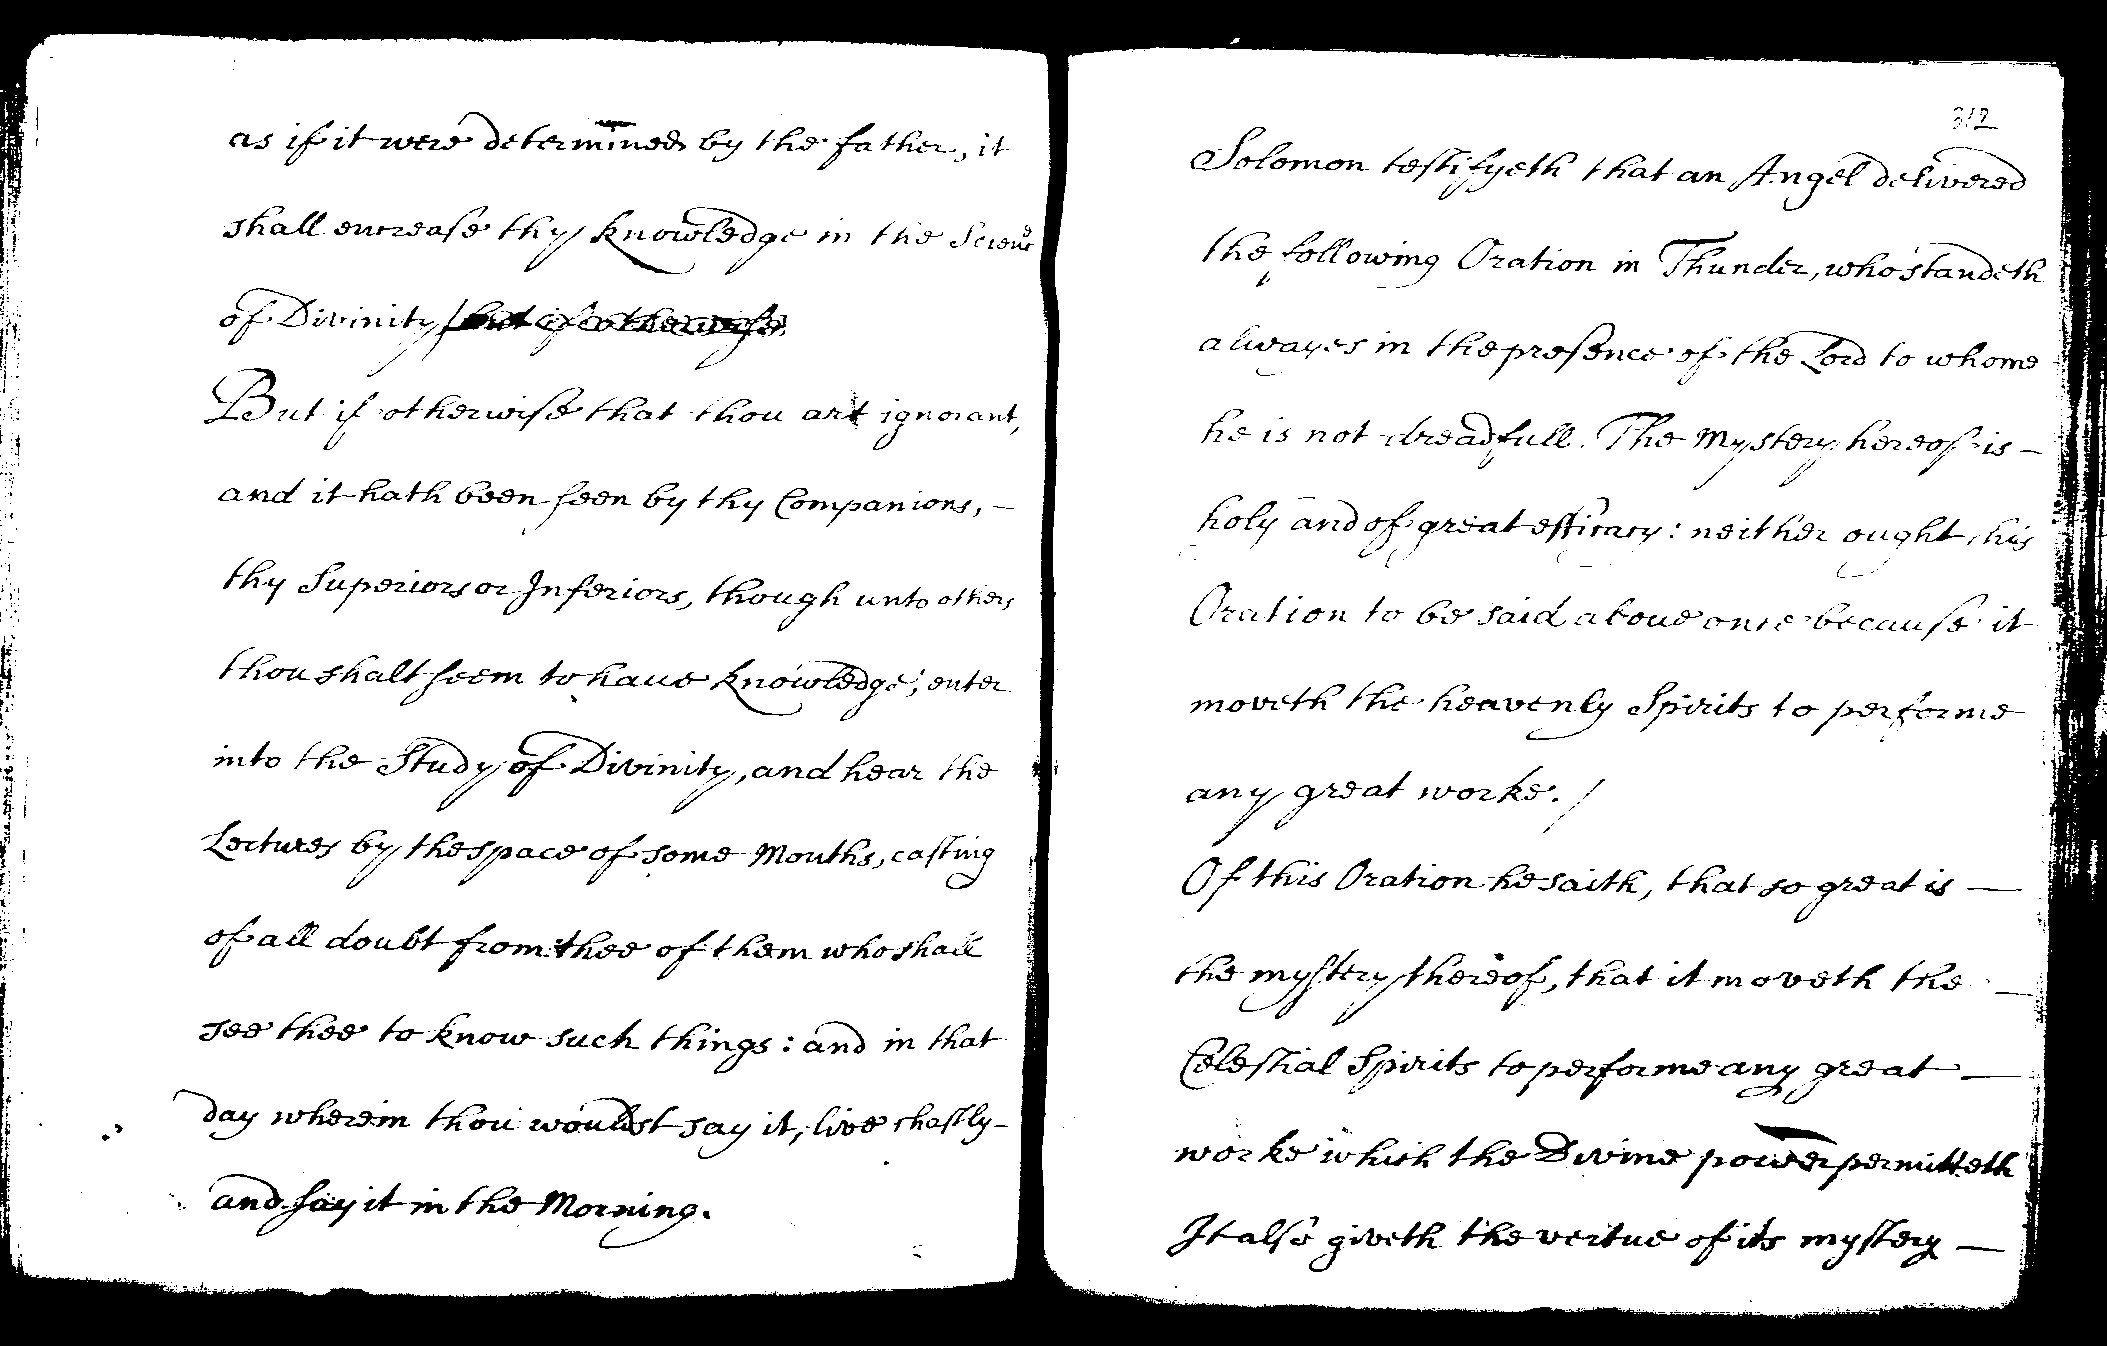 as if it were determined by the father, it
shall encrease thy knowledge in the Science
of Divinity/ but if otherwise
But if otherwise that thou art ignorant,
and it hath been seen by thy Companions, –
thy Superiors or Inferiors, though unto others
thou shalt seem to haue knowledge, enter
into the Study of Divinity, and hear the
Lectures by the space of some Months, casting
of all doubt from thee of them who shall
see thee to know such things: and in that
day wherein thou wouldst say it, live chastly –
and say it in the Morning.
312
Solomon testifyeth that an Angel delivered
the following Oration in Thunder, who standeth
alwayes in the presence of the Lord to whome
he is not dreadfull. The Mystery hereof is –
holy and of great efficacy: neither ought this
Oration to be said aboue once because it
moveth the heavenly Spirits to performe
any great worke. /
Of this Oration he saith, that so great is —
the mystery thereof, that it moveth the —
Celestial Spirits to performe any great —
worke which the Divine power permitteth
It also giveth the vertue of its mystery —